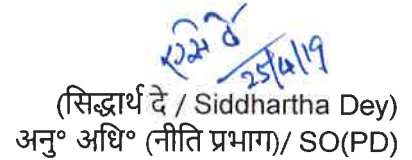 25/4/19
(सिद्धार्थ दे / Siddhartha Dey)
अनु° अधि° (नीति प्रभाग)/ SO(PD)